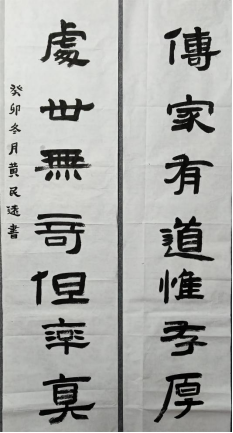 傳家有道惟存厚
處世無奇但率真
癸卯冬月黄民达書